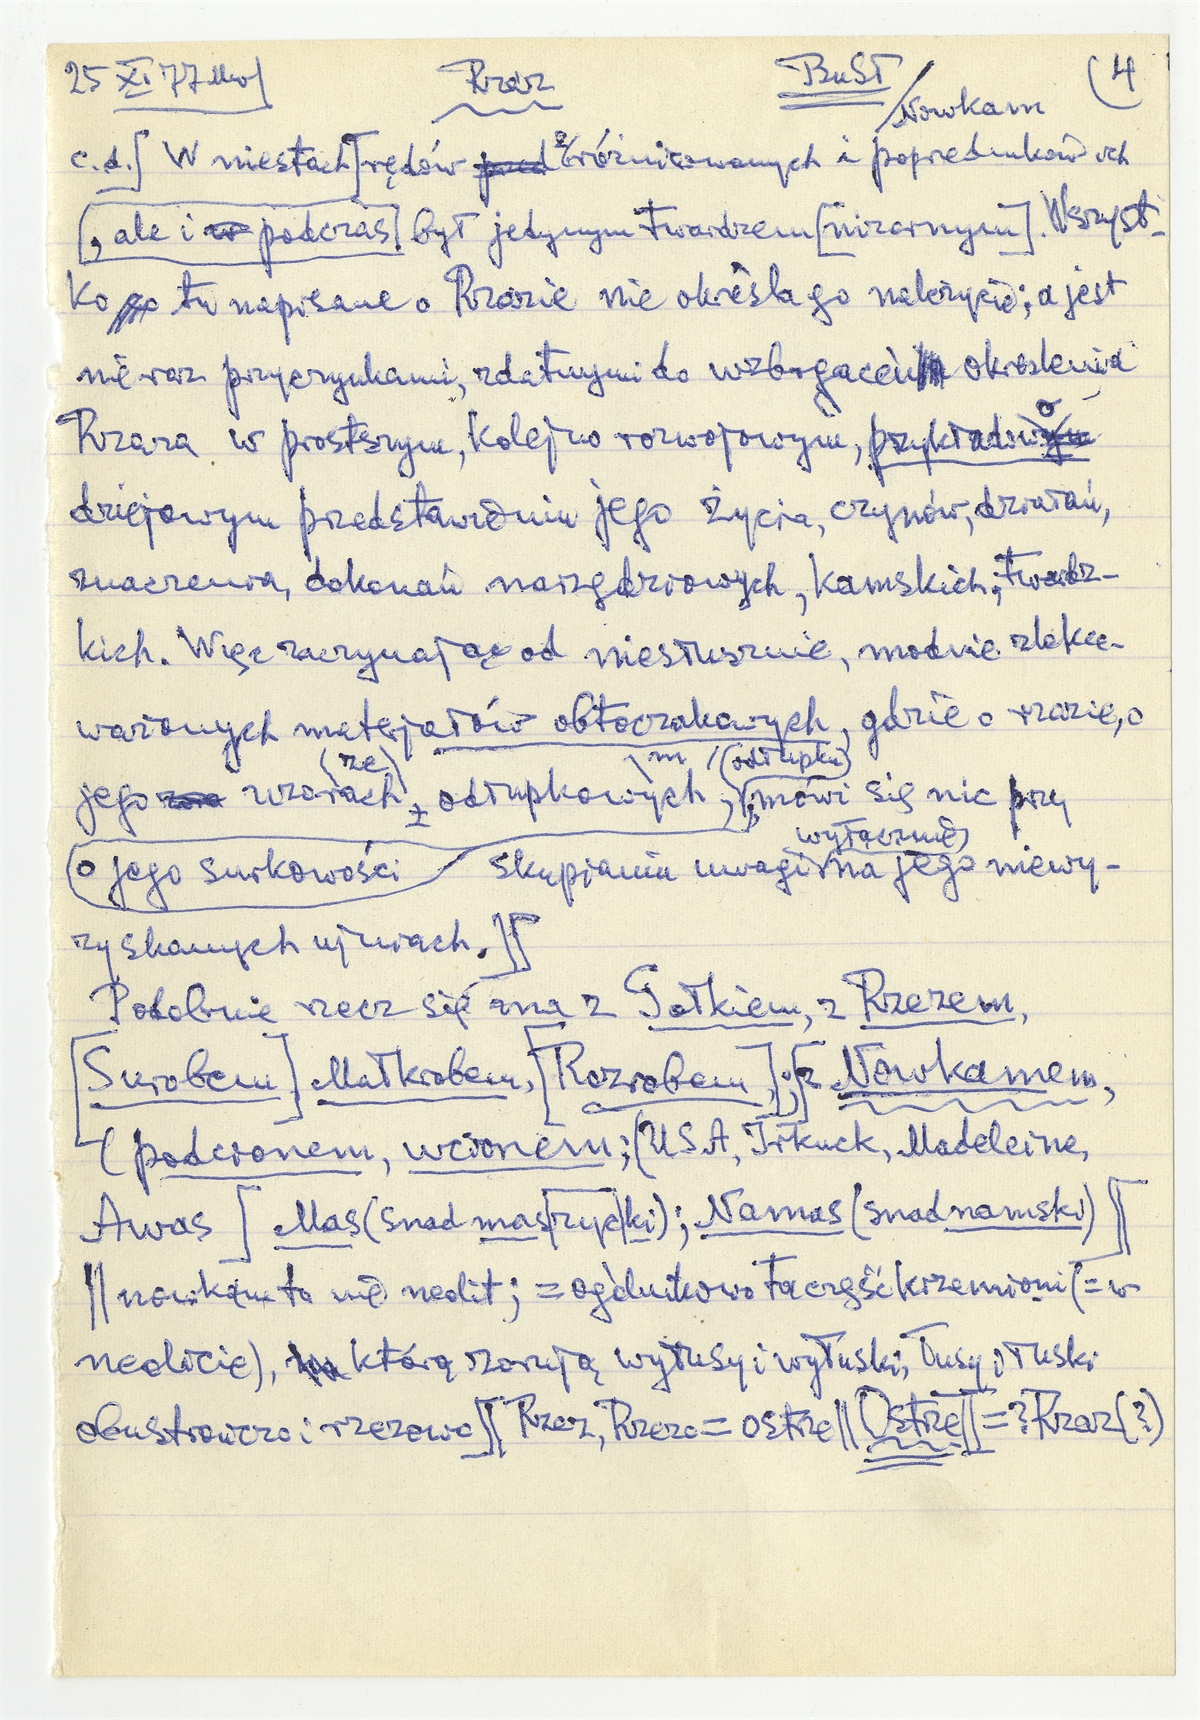 25 XI 77 Mw] Rzaz BuST / Nowkam (4
c.d.] W miestach] rędów zróżnicowanych i poprzedników ich
[, ale i podczas] był jedynym twardzem [nizarnym]. Wszyst-
ko tu napisane o Rzazie nie określa go należycie; a jest
nieraz przyczynkami, zdatnymi do wzbogaceń określenia
Rzaza w prostszym, kolejno rozwojowym, przykładowo
dziejowym przedstawieniu jego życia, czynów, działań,
znaczenia, dokonań narzędziowych, kamskich, twardz-
kich. Więc zaczynając od niesłusznie, modnie zlekce-
ważonych materjałów obtoczakowych, gdzie o rzazie, o
(ze) m (odłupku)
jego wzorach ± odłupkowych, mówi się nic przy
wyłącznie
o jego surkowości skupianiu uwagi na jego niewy-
zyskanych ujściach.]]
Podobnie rzecz się ma z Gatkiem, z Rzezem,
[Surobem] Matkrobem, [Rozrobem,]; [z Nowkamem,
( podcionem, wcionem; (USA, Irkuck, Madeleine,
Awas [ Mas (snad mas[rzyc]ki); Namas (snad namski) ]]
|| nowkam to nie neolit; = ogólnikowo ta część krzemioni (= w
neolicie), którą zorują wyłusy i wyłuski, łusy i łuski
obustrowczo i rzezowo ]] Rzaz, Rzezo = ostrze || Ostrze || = ? Rzaz (?)